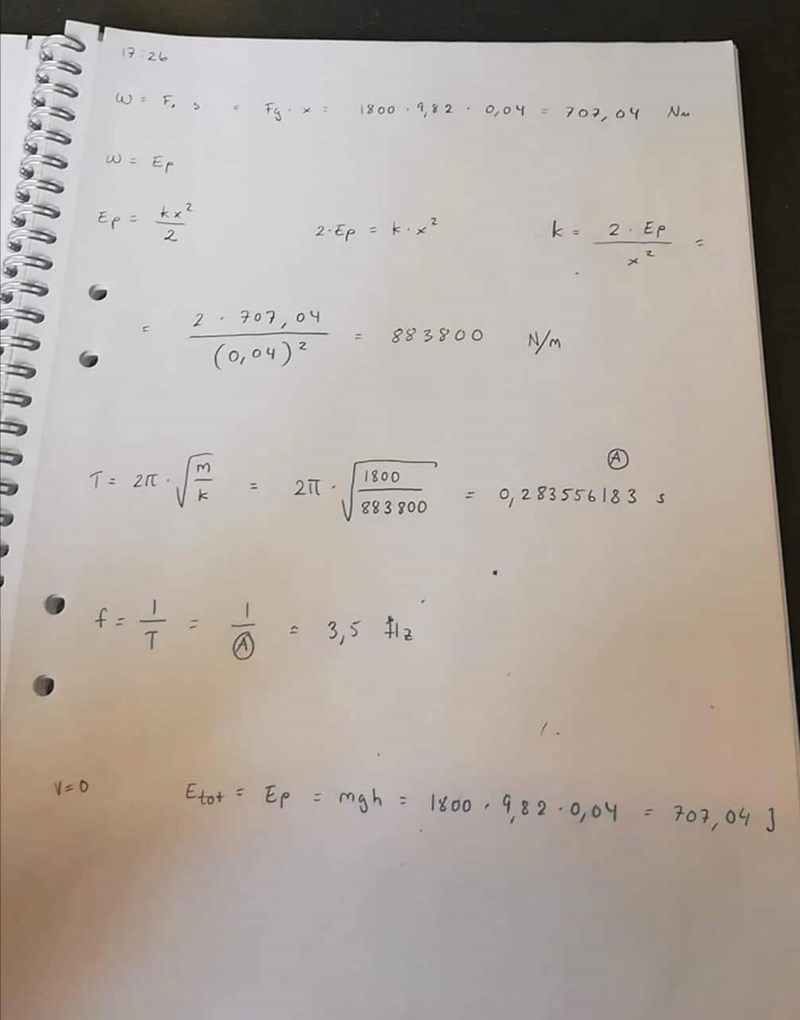 17:26
W = F. s = Fg · x = 1800 · 9,82 · 0,04 = 707,04 Nm
W = Ep
Ep = kx²/2    2·Ep = k·x²    k = 2 · Ep / x² =
= 2 · 707,04 / (0,04)² = 883800 N/m
T = 2π · √(m/k) = 2π · √(1800/883800) = 0,283556183 s Ⓐ
f = 1/T = 1/Ⓐ = 3,5 Hz
V=0    Etot = Ep = mgh = 1800 · 9,82 · 0,04 = 707,04 J